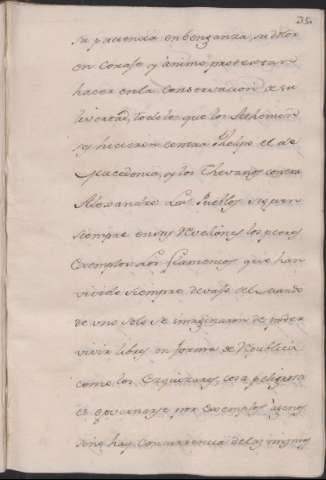 su paciencia en benganza, su dolor
en coraje y animo, protestan
hacer en la conservacion de su
livertad, todo lo que los Athenien
y hicieron contra Phelipe el de
Macedonia, y los Thevanos contra
Alexandro Los Pueblos siguen
siempre en sus Reveliones los peores
exemplos Los Flamencos que han
vivido siempre devajo del mando
de uno solo se imaginaron de poder
vivir libres en forma de Republica
como los Esguizaros, cosa peligrosa
es governarse por exemplos agenos
sino hay concurrencia de los mismos